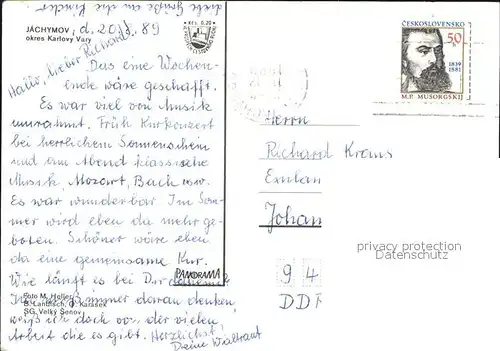 liebe Grüße an die Kinder
JÁCHYMOV, d. 20.8.89
okres Karlovy Vary
Kčs 0,20
Hallo, lieber Richard!
Das eine Wochen-
ende wäre geschafft.
Es war viel von Musik
umrahmt. Früh Kurkonzert
bei herrlichem Sonnenschein
und am Abend klassische
Musik, Mozart, Bach usw.
Es war wunderbar. Im Som-
mer wird eben da mehr ge-
boten. Schöner wäre eben
da eine gemeinsame Kur.
Wie läuft es bei Dir daheim?
PANORAMA
Foto M. Heller,
immer daran denken,
B. Landisch, O. Karásek
weiß ich doch von der vielen
SG Velký Šenov
Arbeit die es gibt. Herzlichst!
Deine Waltraut
ČESKOSLOVENSKO
50 h
1839
1881
M.P. MUSORGSKIJ
Herrn
Richard Kraus
Johan
privacy protection
Datenschutz
9 4
DDR